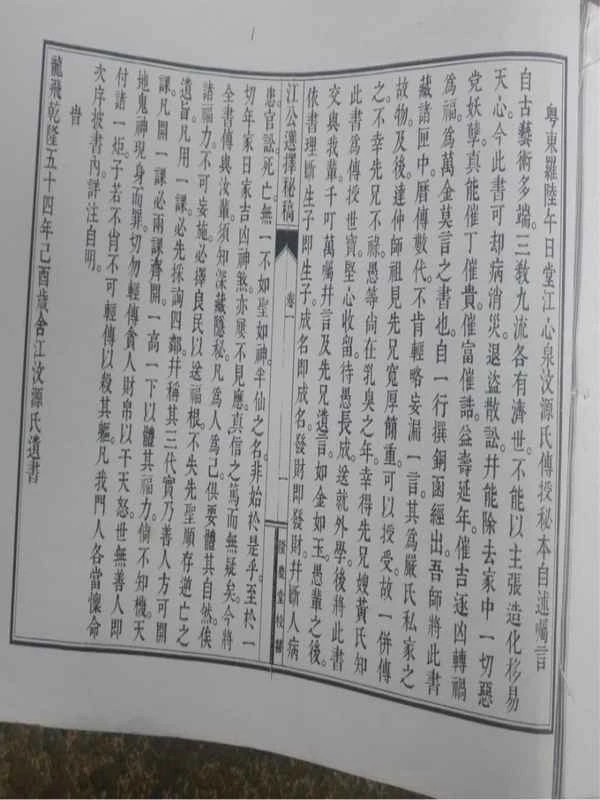 粵東羅陸午日堂江心泉汶源氏傳授秘本自述囑言
自古藝術多端。三敎九流各有濟世。不能以主張造化移易
天心。今此書可却病消災。退盜散訟。幷能除去家中一切惡
党妖孽。真能催丁催貴。催富催誥。益壽延年。催吉逐凶轉禍
爲福。爲萬金莫言之書也。自一行撰銅函經出。吾師將此書
藏諸匣中。曆傳數代。不肯輕略妄漏一言。其爲嚴氏私家之
故物。及後。達仲師祖見先兄寬厚簡重。可以授受。故一併傳
之。不幸先兄不祿。愚等尙在乳臭之年。幸得先兄嫂黃氏知
此書爲傳授世寶。堅心收留。待愚長成。送就外學。後將此書
交與我輩。千叮萬囑。幷言及先兄遺言。如金如玉。愚輩之後。
依書理斷。生子即生子。成名即成名。發財即發財。幷斷人病
江公選擇秘稿
卷一
一
患官訟死亡。無一不如聖如神。半仙之名。非始於是乎。至於一
切年家日家吉凶神煞。亦屢不見應。真信之篤而無疑矣。今將
全書傳與汝輩。須知深藏隱秘。凡爲人爲己。俱要體其自然。俟
諸福力。不可妄施。必擇良民以送福根。不失先聖順存逆亡之
遺旨。凡用一課。必先採詢四鄰。幷稱其三代實乃善人。方可開
課。凡開一課。必兩課齊開。一高一下。以體其福力。倘不知機。天
地鬼神現身而罪。切勿輕傳貪人財帛。以干天怒。世無善人。即
付諸一炬。子若不肖。不可輕傳以殺其軀。凡我門人各當懷命
次序披書內。詳注自明。
旹
龍飛乾隆五十四年己酉歲舍江汶源氏遺書